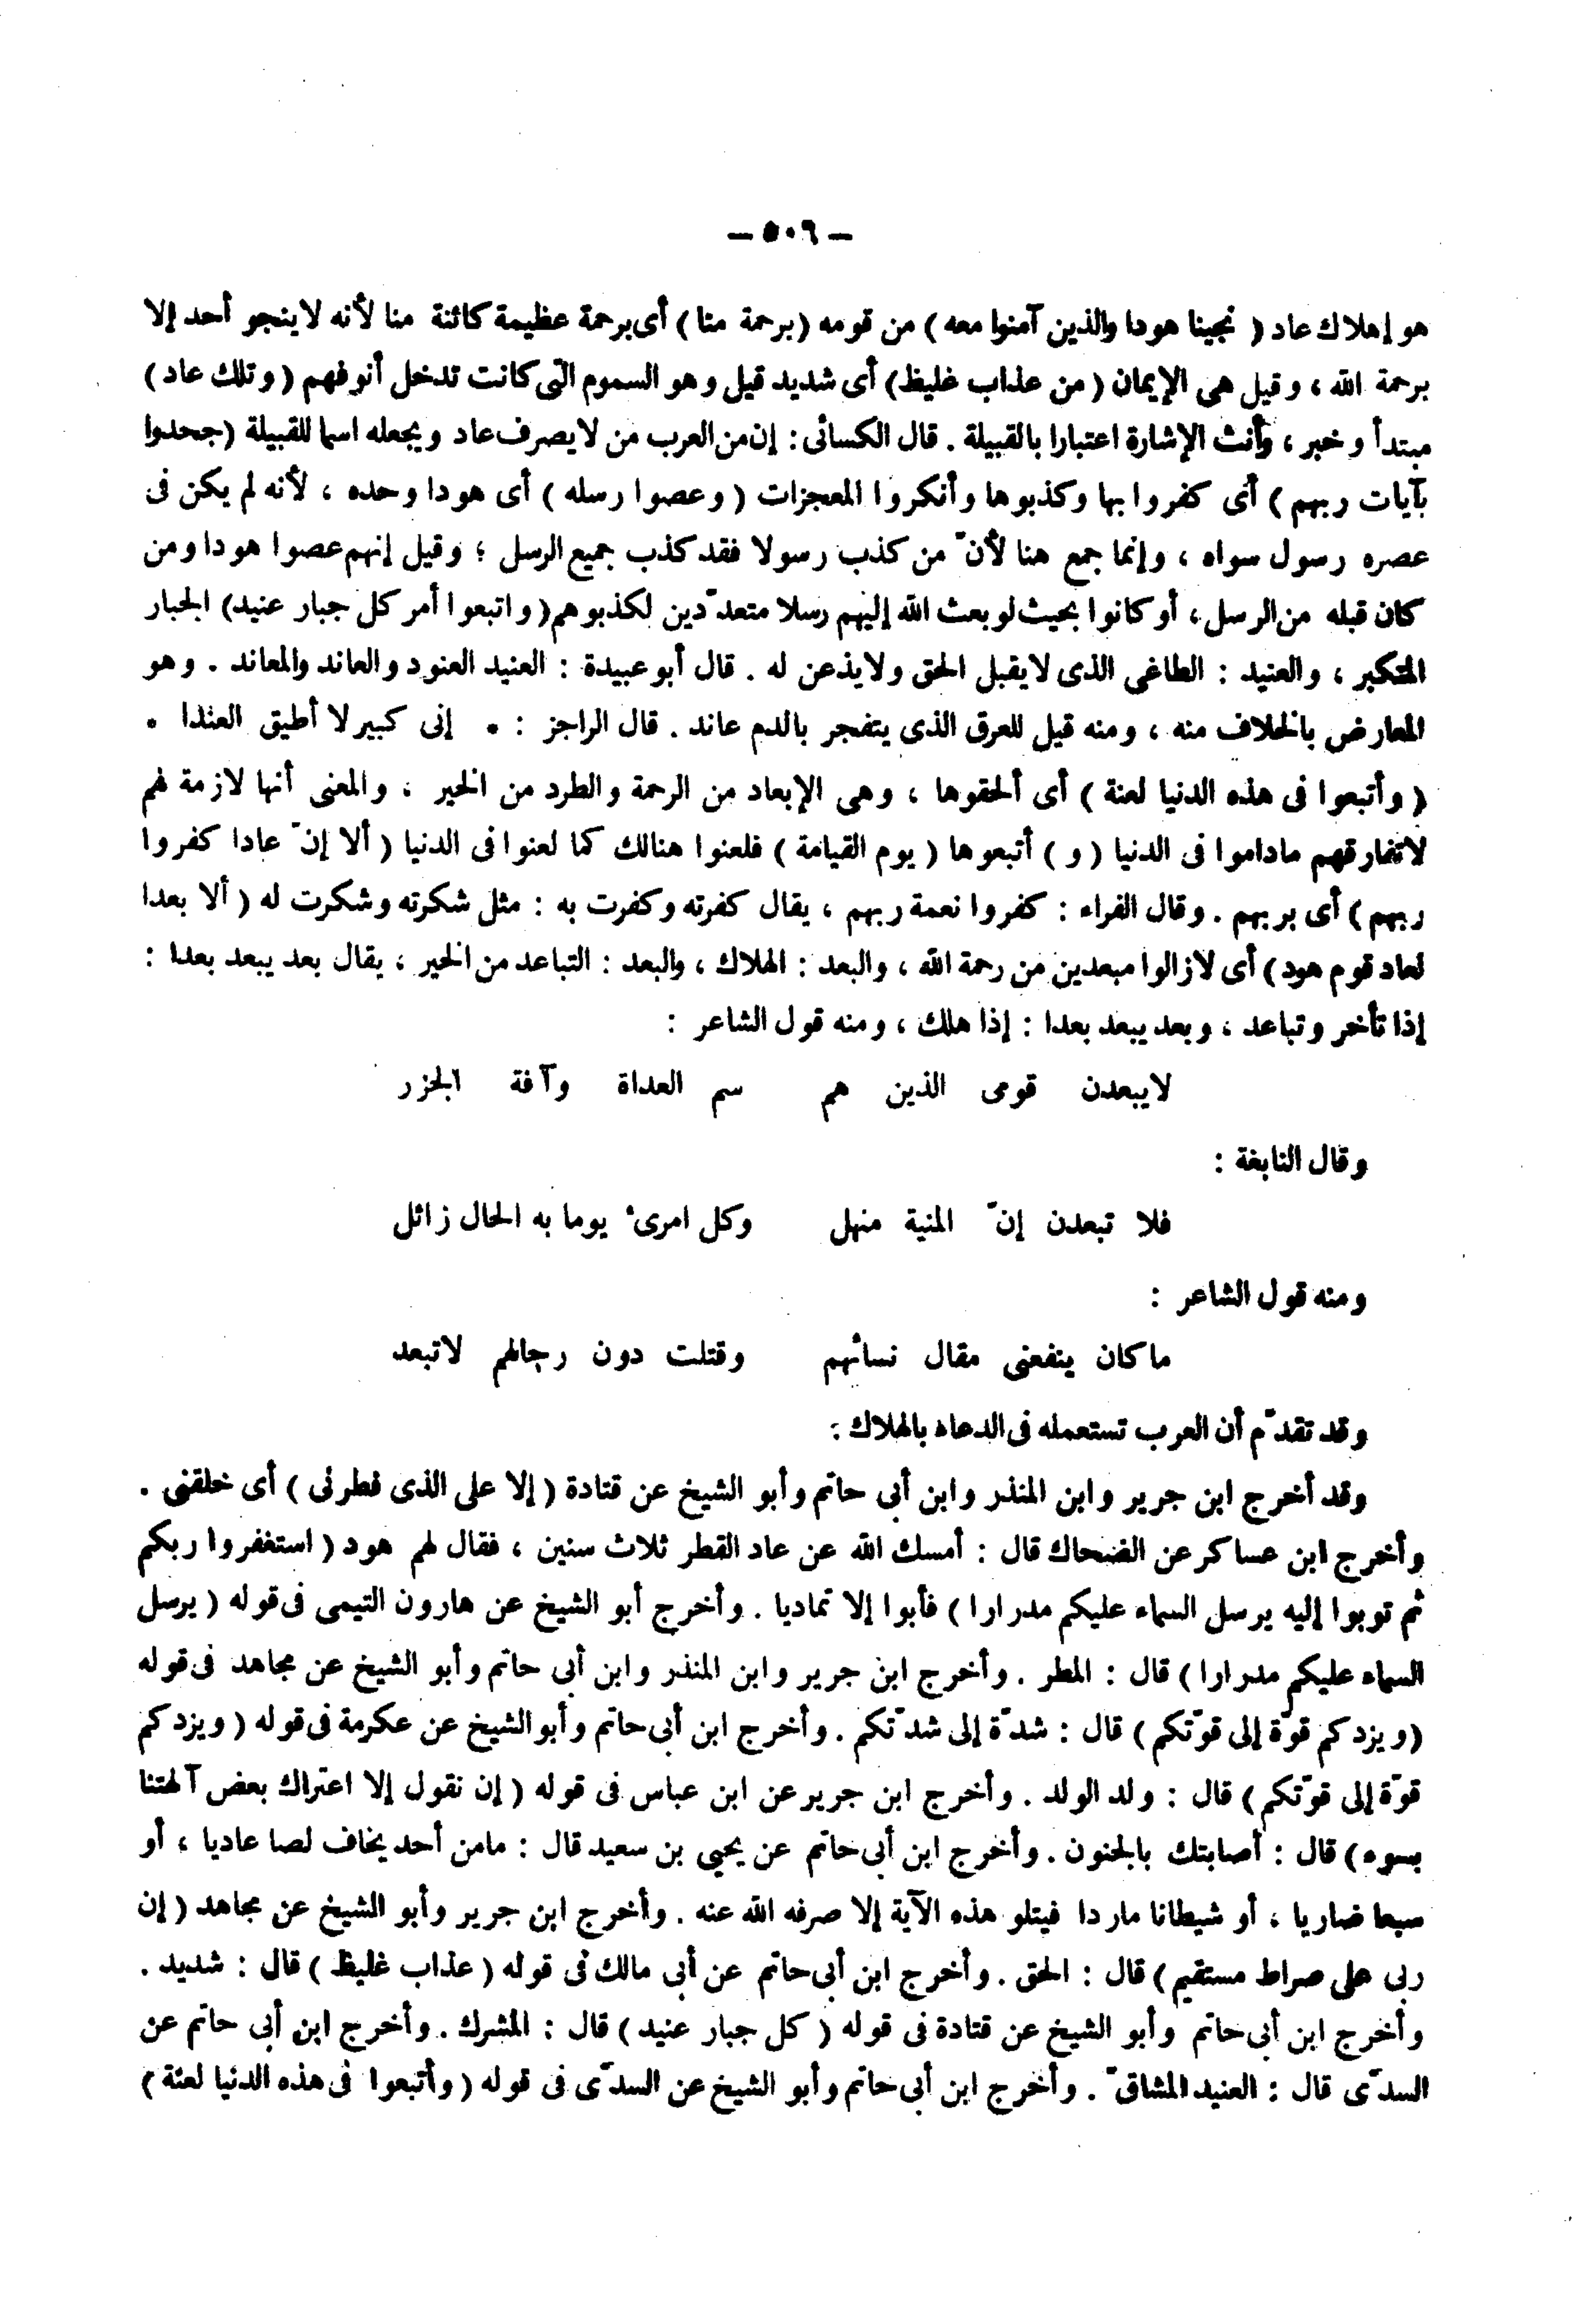 — ٥٠٦ —
هو إهلاك عاد ( نجينا هودا والذين آمنوا معه ) من قومه ( برحمة منا ) أى برحمة عظيمة كائنة منا لأنه لاينجو أحد إلا
برحمة الله ، وقيل هى الإيمان ( من عذاب غليظ ) أى شديد قيل وهو السموم التى كانت تدخل أنوفهم ( وتلك عاد )
مبتدأ وخبر ، وأنث الإشارة اعتبارا بالقبيلة . قال الكسائى : إن من العرب من لايصرف عاد ويجعله اسما للقبيلة ( جحدوا
بآيات ربهم ) أى كفروا بها وكذبوها وأنكروا المعجزات ( وعصوا رسله ) أى هودا وحده ، لأنه لم يكن فى
عصره رسول سواه ، وإنما جمع هنا لأنّ من كذب رسولا فقد كذب جميع الرسل ؛ وقيل إنهم عصوا هودا ومن
كان قبله من الرسل ، أو كانوا بحيث لو بعث الله إليهم رسلا متعدّدين لكذبوهم ( واتبعوا أمر كل جبار عنيد ) الجبار
المتكبر ، والعنيد : الطاغى الذى لايقبل الحق ولايذعن له . قال أبو عبيدة : العنيد العنود والعاند والمعاند . وهو
المعارض بالخلاف منه ، ومنه قيل للعرق الذى يتفجر بالدم عاند . قال الراجز : • إنى كبير لا أطيق العندا •
( وأتبعوا فى هذه الدنيا لعنة ) أى ألحقوها ، وهى الإبعاد من الرحمة والطرد من الخير ، والمعنى أنها لازمة لهم
لاتفارقهم ماداموا فى الدنيا ( و ) أتبعوها ( يوم القيامة ) فلعنوا هنالك كما لعنوا فى الدنيا ( ألا إنّ عادا كفروا
ربهم ) أى بربهم . وقال الفراء : كفروا نعمة ربهم ، يقال كفرته وكفرت به : مثل شكرته وشكرت له ( ألا بعدا
لعاد قوم هود ) أى لازالوا مبعدين من رحمة الله ، والبعد : الهلاك ، والبعد : التباعد من الخير ، يقال بعد يبعد بعدا :
إذا تأخر وتباعد ، وبعد يبعد بعدا : إذا هلك ، ومنه قول الشاعر :
لايبعدن قومى الذين هم سم العداة وآفة الجزر
وقال النابغة :
فلا تبعدن إنّ المنية منهل وكل امرئ يوما به الحال زائل
ومنه قول الشاعر :
ماكان ينفعنى مقال نسائهم وقتلت دون رجالهم لاتبعد
وقد تقدّم أن العرب تستعمله فى الدعاء بالهلاك :
وقد أخرج ابن جرير وابن المنذر وابن أبى حاتم وأبو الشيخ عن قتادة ( إلا على الذى فطرنى ) أى خلقنى .
وأخرج ابن عساكر عن الضحاك قال : أمسك الله عن عاد القطر ثلاث سنين ، فقال لهم هود ( استغفروا ربكم
ثم توبوا إليه يرسل السماء عليكم مدرارا ) فأبوا إلا تماديا . وأخرج أبو الشيخ عن هارون التيمى فى قوله ( يرسل
السماء عليكم مدرارا ) قال : المطر . وأخرج ابن جرير وابن المنذر وابن أبى حاتم وأبو الشيخ عن مجاهد فى قوله
( ويزدكم قوّة إلى قوّتكم ) قال : شدّة إلى شدّتكم . وأخرج ابن أبى حاتم وأبو الشيخ عن عكرمة فى قوله ( ويزدكم
قوّة إلى قوّتكم ) قال : ولد الولد . وأخرج ابن جرير عن ابن عباس فى قوله ( إن نقول إلا اعتراك بعض آلهتنا
بسوء ) قال : أصابتك بالجنون . وأخرج ابن أبى حاتم عن يحيى بن سعيد قال : مامن أحد يخاف لصا عاديا ، أو
سبعا ضاريا ، أو شيطانا ماردا فيتلو هذه الآية إلا صرفه الله عنه . وأخرج ابن جرير وأبو الشيخ عن مجاهد ( إن
ربى على صراط مستقيم ) قال : الحق . وأخرج ابن أبى حاتم عن أبى مالك فى قوله ( عذاب غليظ ) قال : شديد .
وأخرج ابن أبى حاتم وأبو الشيخ عن قتادة فى قوله ( كل جبار عنيد ) قال : المشرك . وأخرج ابن أبى حاتم عن
السدّى قال : العنيد المشاقّ . وأخرج ابن أبى حاتم وأبو الشيخ عن السدّى فى قوله ( وأتبعوا فى هذه الدنيا لعنة )